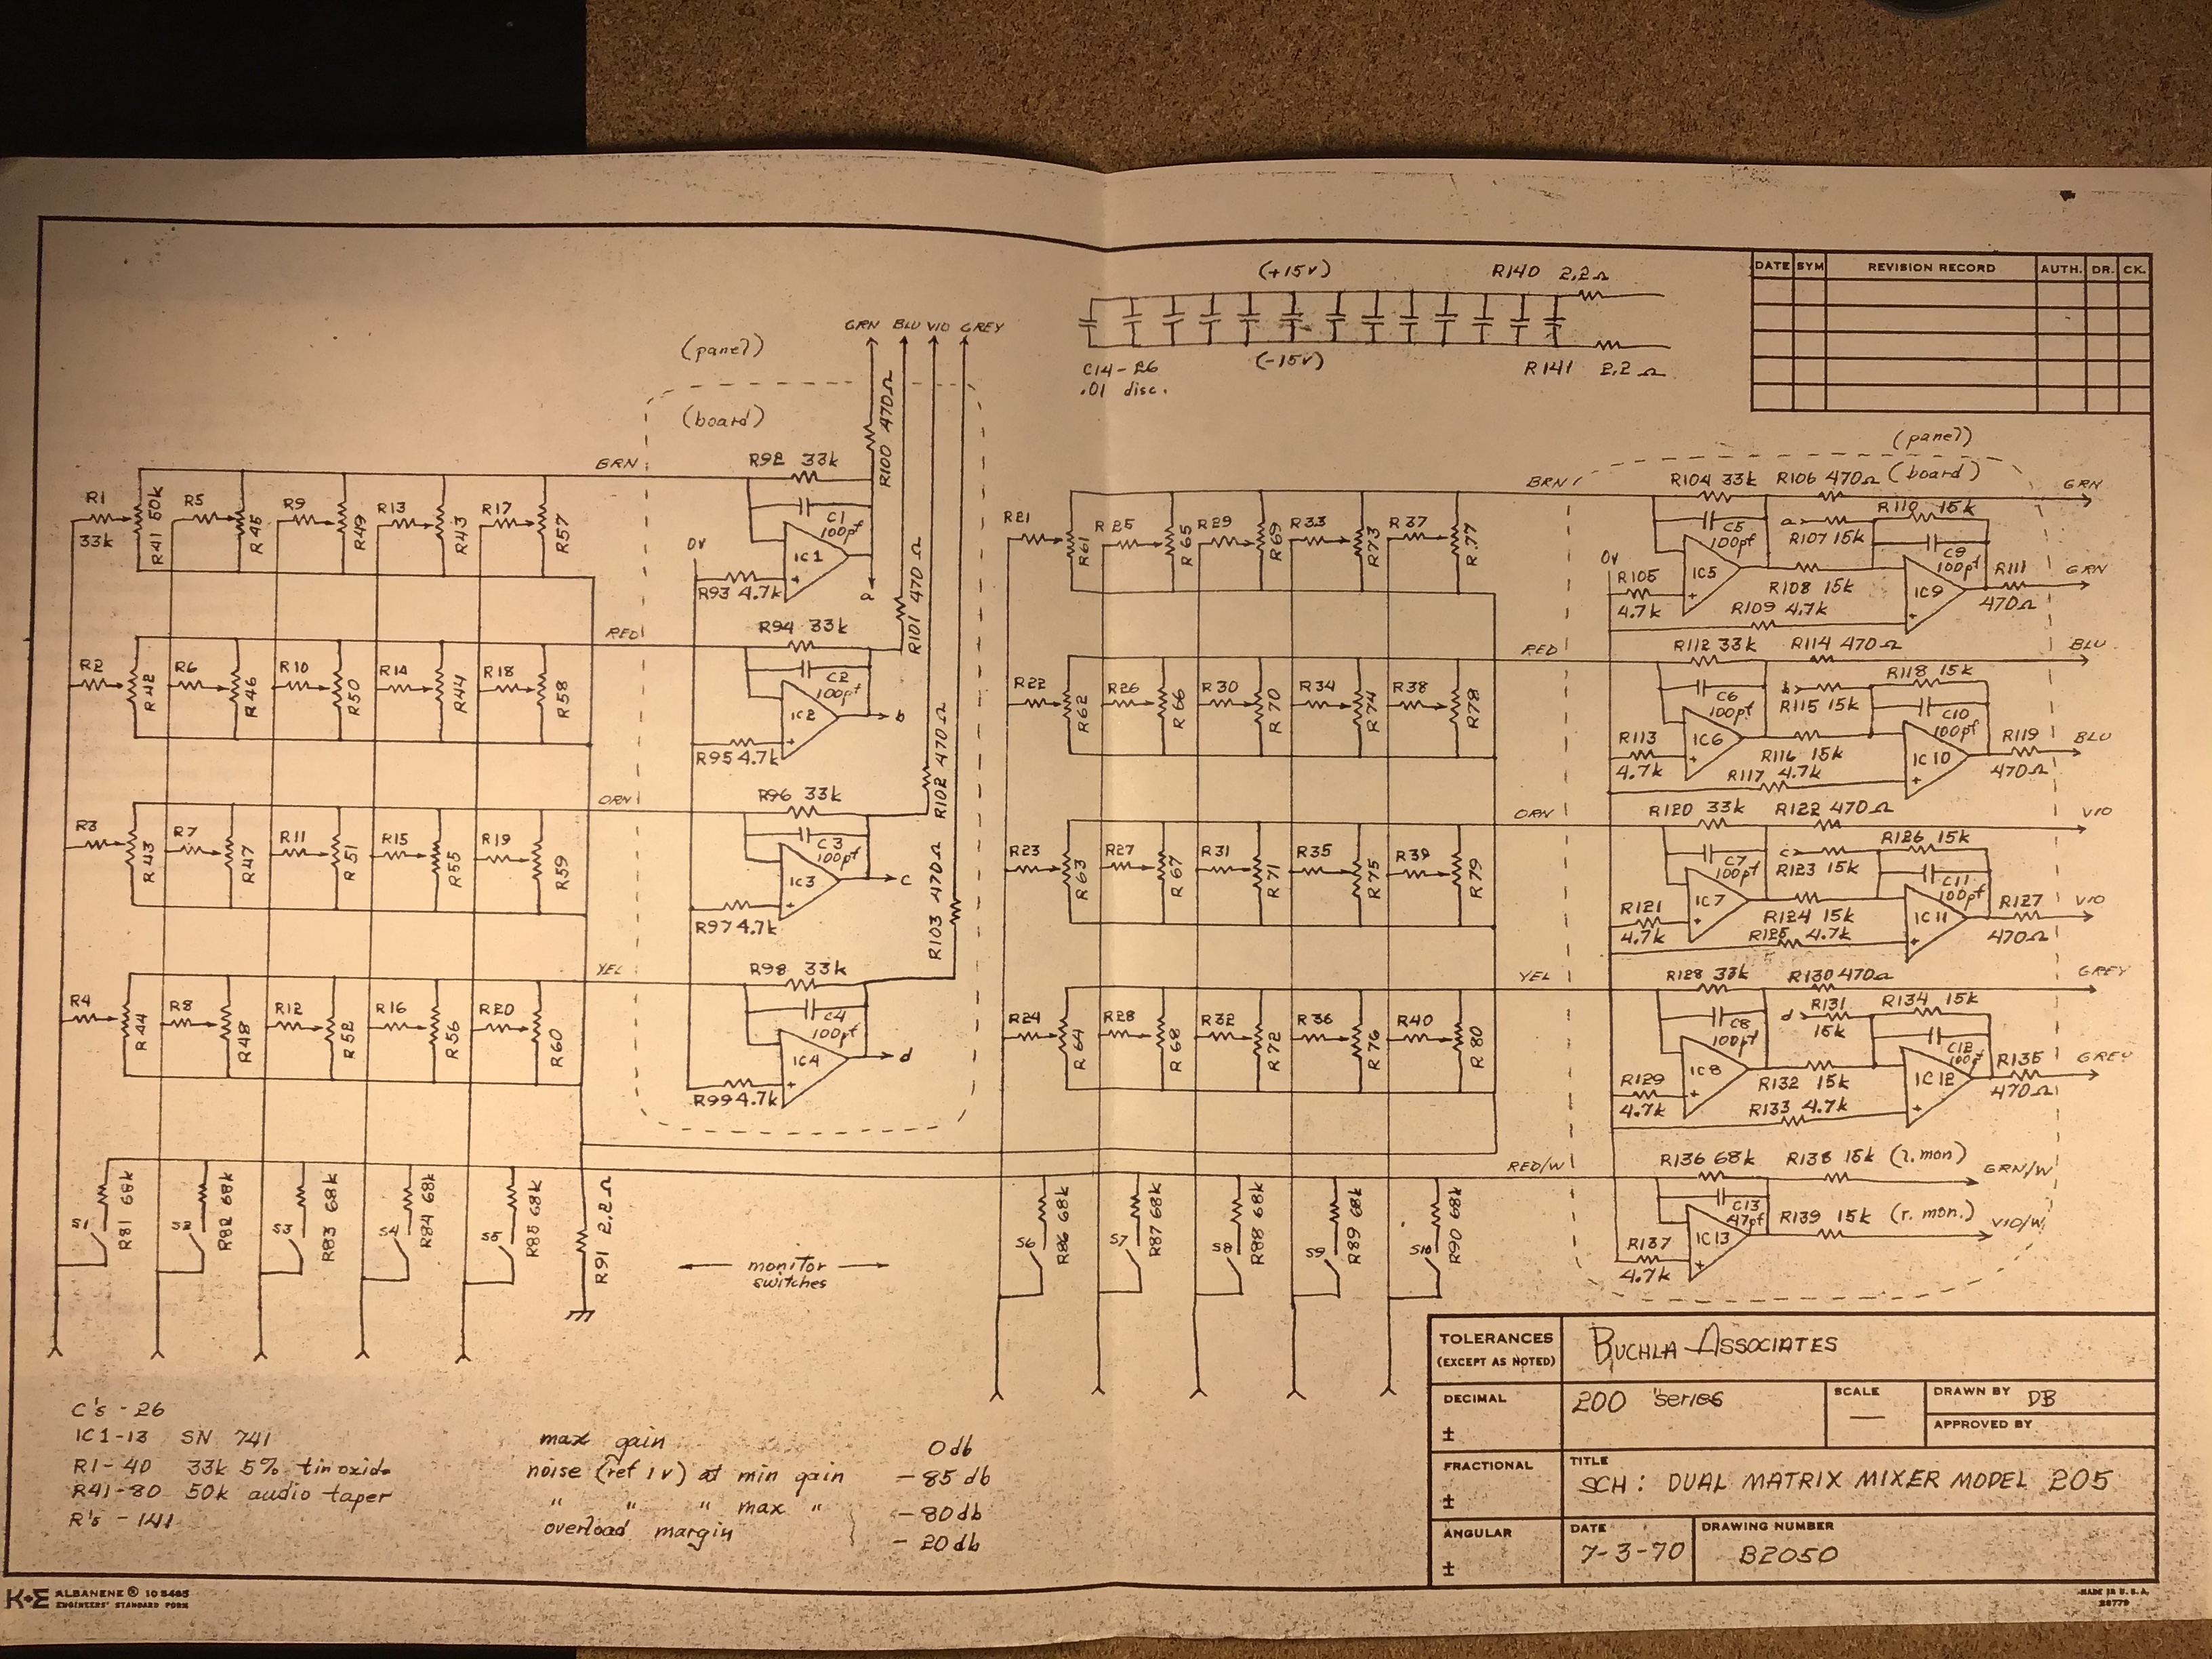 (+15v) R140 2.2Ω
(-15v) R141 2.2Ω
C14-26
.01 disc.
DATE SYM REVISION RECORD AUTH. DR. CK.
GRN BLU VIO GREY
(panel)
(board)
GRN
R92 33k
C1
100pf
IC1
0V
R93 4.7k
a
R100 470Ω
R1
33k
R41 50k
R5
R45
R9
R49
R13
R43
R17
R57
RED
R94 33k
C2
100pf
IC2
R95 4.7k
b
R101 470Ω
R2
R42
R6
R46
R10
R50
R14
R44
R18
R58
ORN
R96 33k
C3
100pf
IC3
R97 4.7k
c
R102 470Ω
R3
R43
R7
R47
R11
R51
R15
R55
R19
R59
YEL
R98 33k
C4
100pf
IC4
R99 4.7k
d
R103 470Ω
R4
R44
R8
R48
R12
R52
R16
R56
R20
R60
S1
R81 68k
S2
R82 68k
S3
R83 68k
S4
R84 68k
S5
R85 68k
R91 2.2Ω
monitor
switches
R21
R61
R25
R65
R29
R69
R33
R73
R37
R77
BRN
R22
R62
R26
R66
R30
R70
R34
R74
R38
R78
RED
R23
R63
R27
R67
R31
R71
R35
R75
R39
R79
ORN
R24
R64
R28
R68
R32
R72
R36
R76
R40
R80
YEL
RED/W
S6
R86 68k
S7
R87 68k
S8
R88 68k
S9
R89 68k
S10
R90 68k
(panel)
R104 33k R106 470Ω (board)
GRN
C5
100pf
a
R107 15k
R110 15k
C9
100pf
0V
R105
4.7k
IC5
R108 15k
R109 4.7k
IC9
R111
470Ω
GRN
R112 33k R114 470Ω
BLU
C6
100pf
b
R115 15k
R118 15k
C10
100pf
R113
4.7k
IC6
R116 15k
R117 4.7k
IC10
R119
470Ω
BLU
R120 33k R122 470Ω
VIO
C7
100pf
c
R123 15k
R126 15k
C11
100pf
R121
4.7k
IC7
R124 15k
R125 4.7k
IC11
R127
470Ω
VIO
R128 33k R130 470Ω
GREY
C8
100pf
d
R131
15k
R134 15k
C12
100pf
R129
4.7k
IC8
R132 15k
R133 4.7k
IC12
R135
470Ω
GREY
R136 68k R138 15k (l. mon)
GRN/W
C13
47pf
R139 15k (r. mon.)
VIO/W
IC13
R137
4.7k
C's - 26
IC1-13 SN 741
R1-40 33k 5% tin oxide
R41-80 50k audio taper
R's - 141
max gain 0db
noise (ref 1v) at min gain -85db
" " " max " -80db
overload margin -20db
TOLERANCES
(EXCEPT AS NOTED)
BUCHLA ASSOCIATES
DECIMAL
±
200 series
SCALE
—
DRAWN BY DB
APPROVED BY
FRACTIONAL
±
TITLE
SCH: DUAL MATRIX MIXER MODEL 205
ANGULAR
±
DATE
7-3-70
DRAWING NUMBER
B2050
K+E ALBANENE ® 10 5465
ENGINEERS' STANDARD FORM
MADE IN U.S.A.